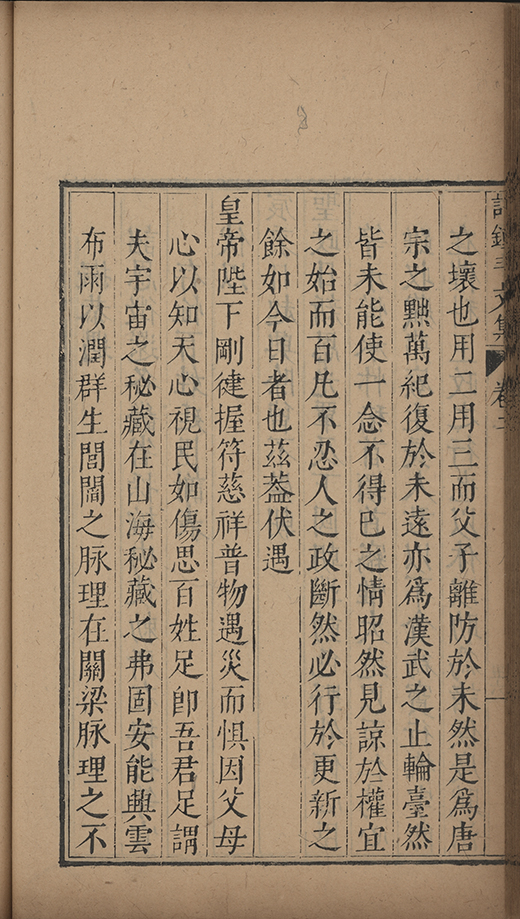 之壞也用二用三而父子離防於未然是爲唐
宗之㸃萬紀復於未遠亦爲漢武之止輪臺然
皆未能使一念不得已之情昭然見諒於權宜
之始而百凡不忍人之政斷然必行於更新之
餘如今日者也茲葢伏遇
皇帝陛下剛徤握符慈祥普物遇災而懼因父母
心以知天心視民如傷思百姓足卽吾君足謂
夫宇宙之秘藏在山海秘藏之弗固安能興雲
布雨以潤群生閭閻之脉理在關梁脉理之不